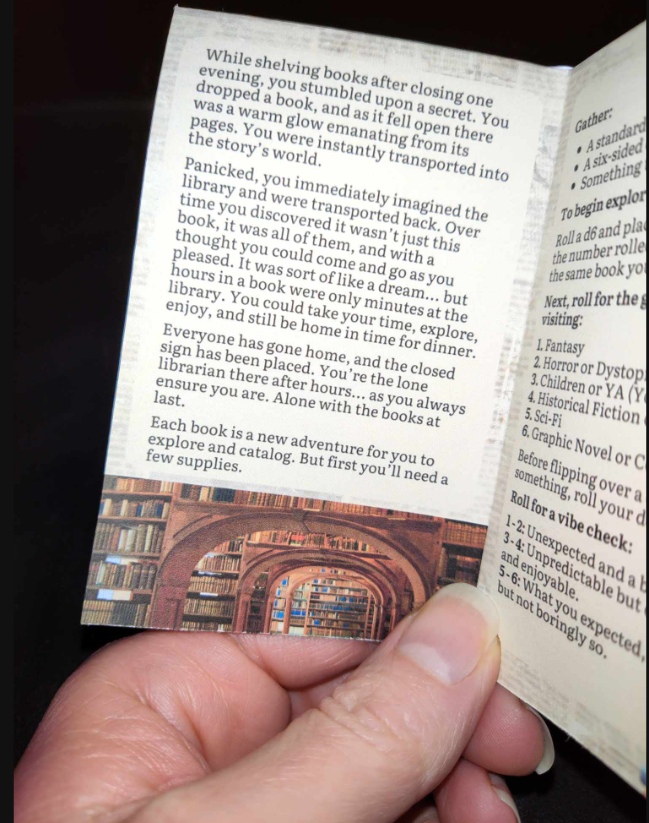 While shelving books after closing one
evening, you stumbled upon a secret. You
dropped a book, and as it fell open there
was a warm glow emanating from its
pages. You were instantly transported into
the story's world.
Panicked, you immediately imagined the
library and were transported back. Over
time you discovered it wasn't just this
book, it was all of them, and with a
thought you could come and go as you
pleased. It was sort of like a dream... but
hours in a book were only minutes at the
library. You could take your time, explore,
enjoy, and still be home in time for dinner.
Everyone has gone home, and the closed
sign has been placed. You're the lone
librarian there after hours... as you always
ensure you are. Alone with the books at
last.
Each book is a new adventure for you to
explore and catalog. But first you'll need a
few supplies.
Gather:
• A standard
• A six-sided
• Something
To begin explor
Roll a d6 and pla
the number rolle
the same book yo
Next, roll for the g
visiting:
1. Fantasy
2. Horror or Dystop
3. Children or YA (Y
4. Historical Fiction
5. Sci-Fi
6. Graphic Novel or C
Before flipping over a
something, roll your d
Roll for a vibe check:
1-2: Unexpected and a b
3-4: Unpredictable but
and enjoyable.
5-6: What you expected,
but not boringly so.